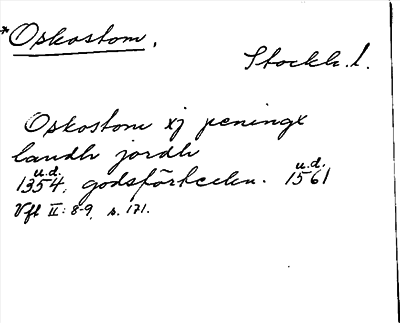 *Oskostom.
Stockh. l.
Oskostom xj peningx
landh jordh
u.d. u.d.
1354, godsförteckn. 1561
Vfl II: 8-9, s. 171.